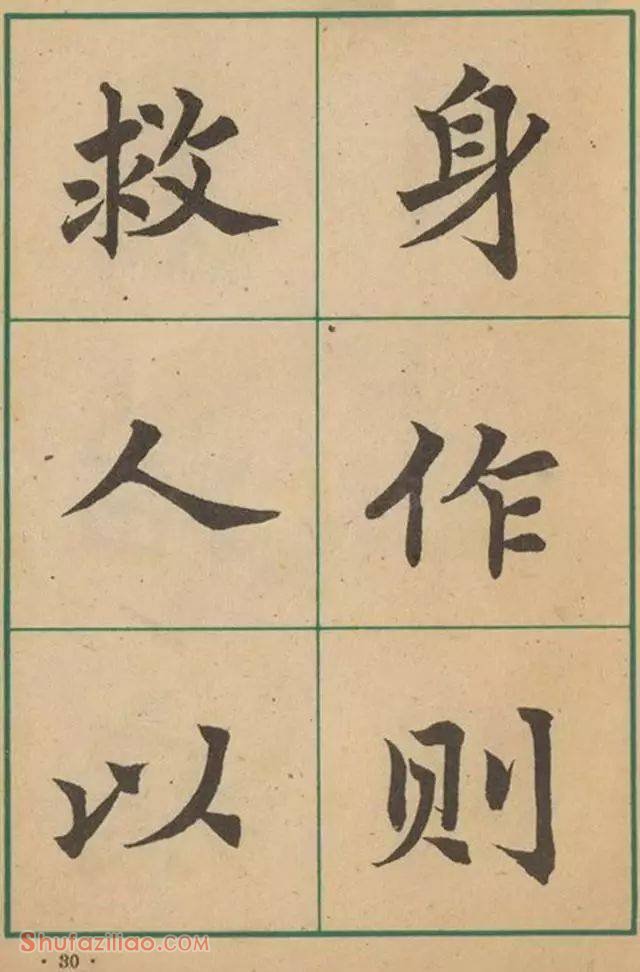 身作则
救人以
Shufaziliao.com
· 30 ·